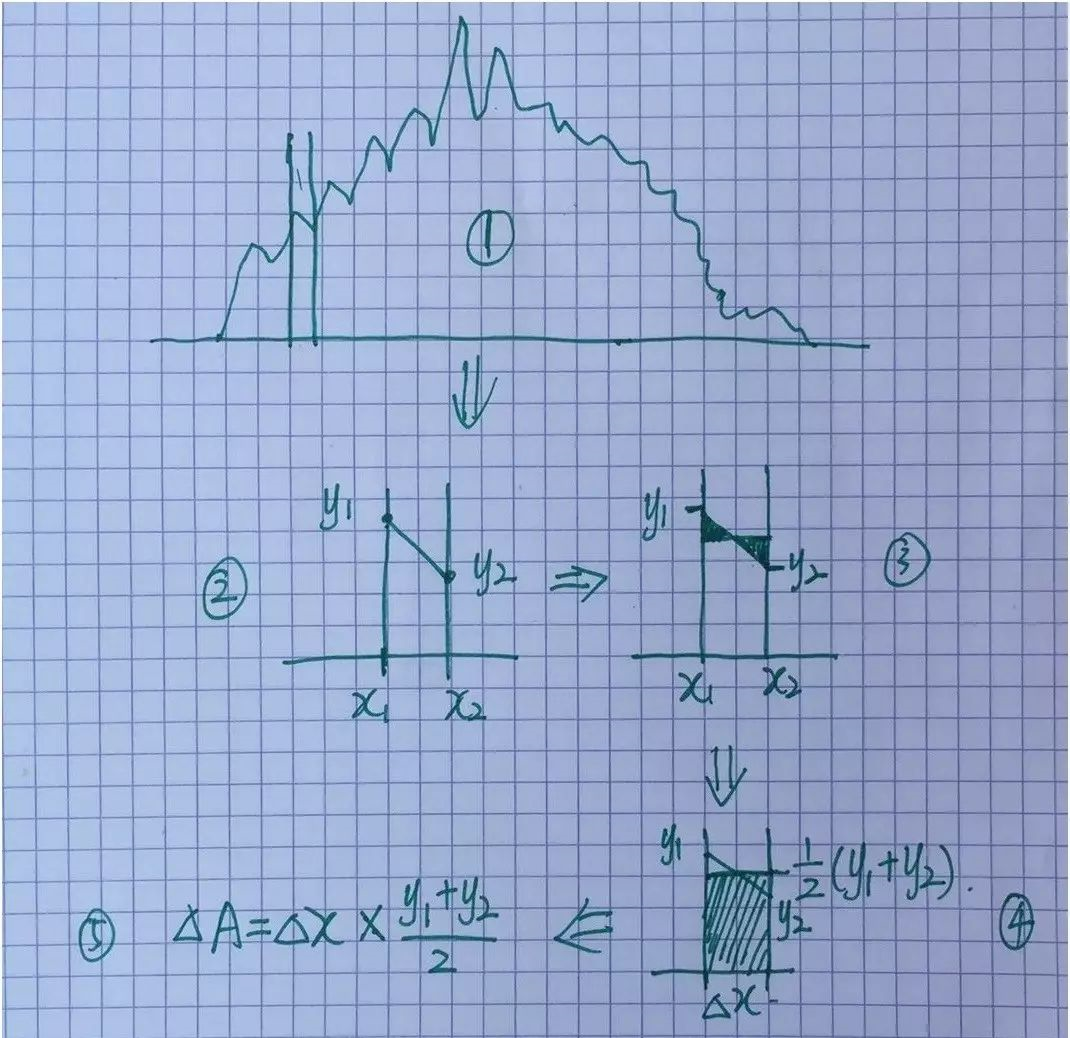 ①
y₁
y₂
②
x₁ x₂
⇒
y₁
y₂
③
x₁ x₂
y₁
½(y₁+y₂).
y₂
④
Δx
⇐
⑤ ΔA=Δx×(y₁+y₂)/2